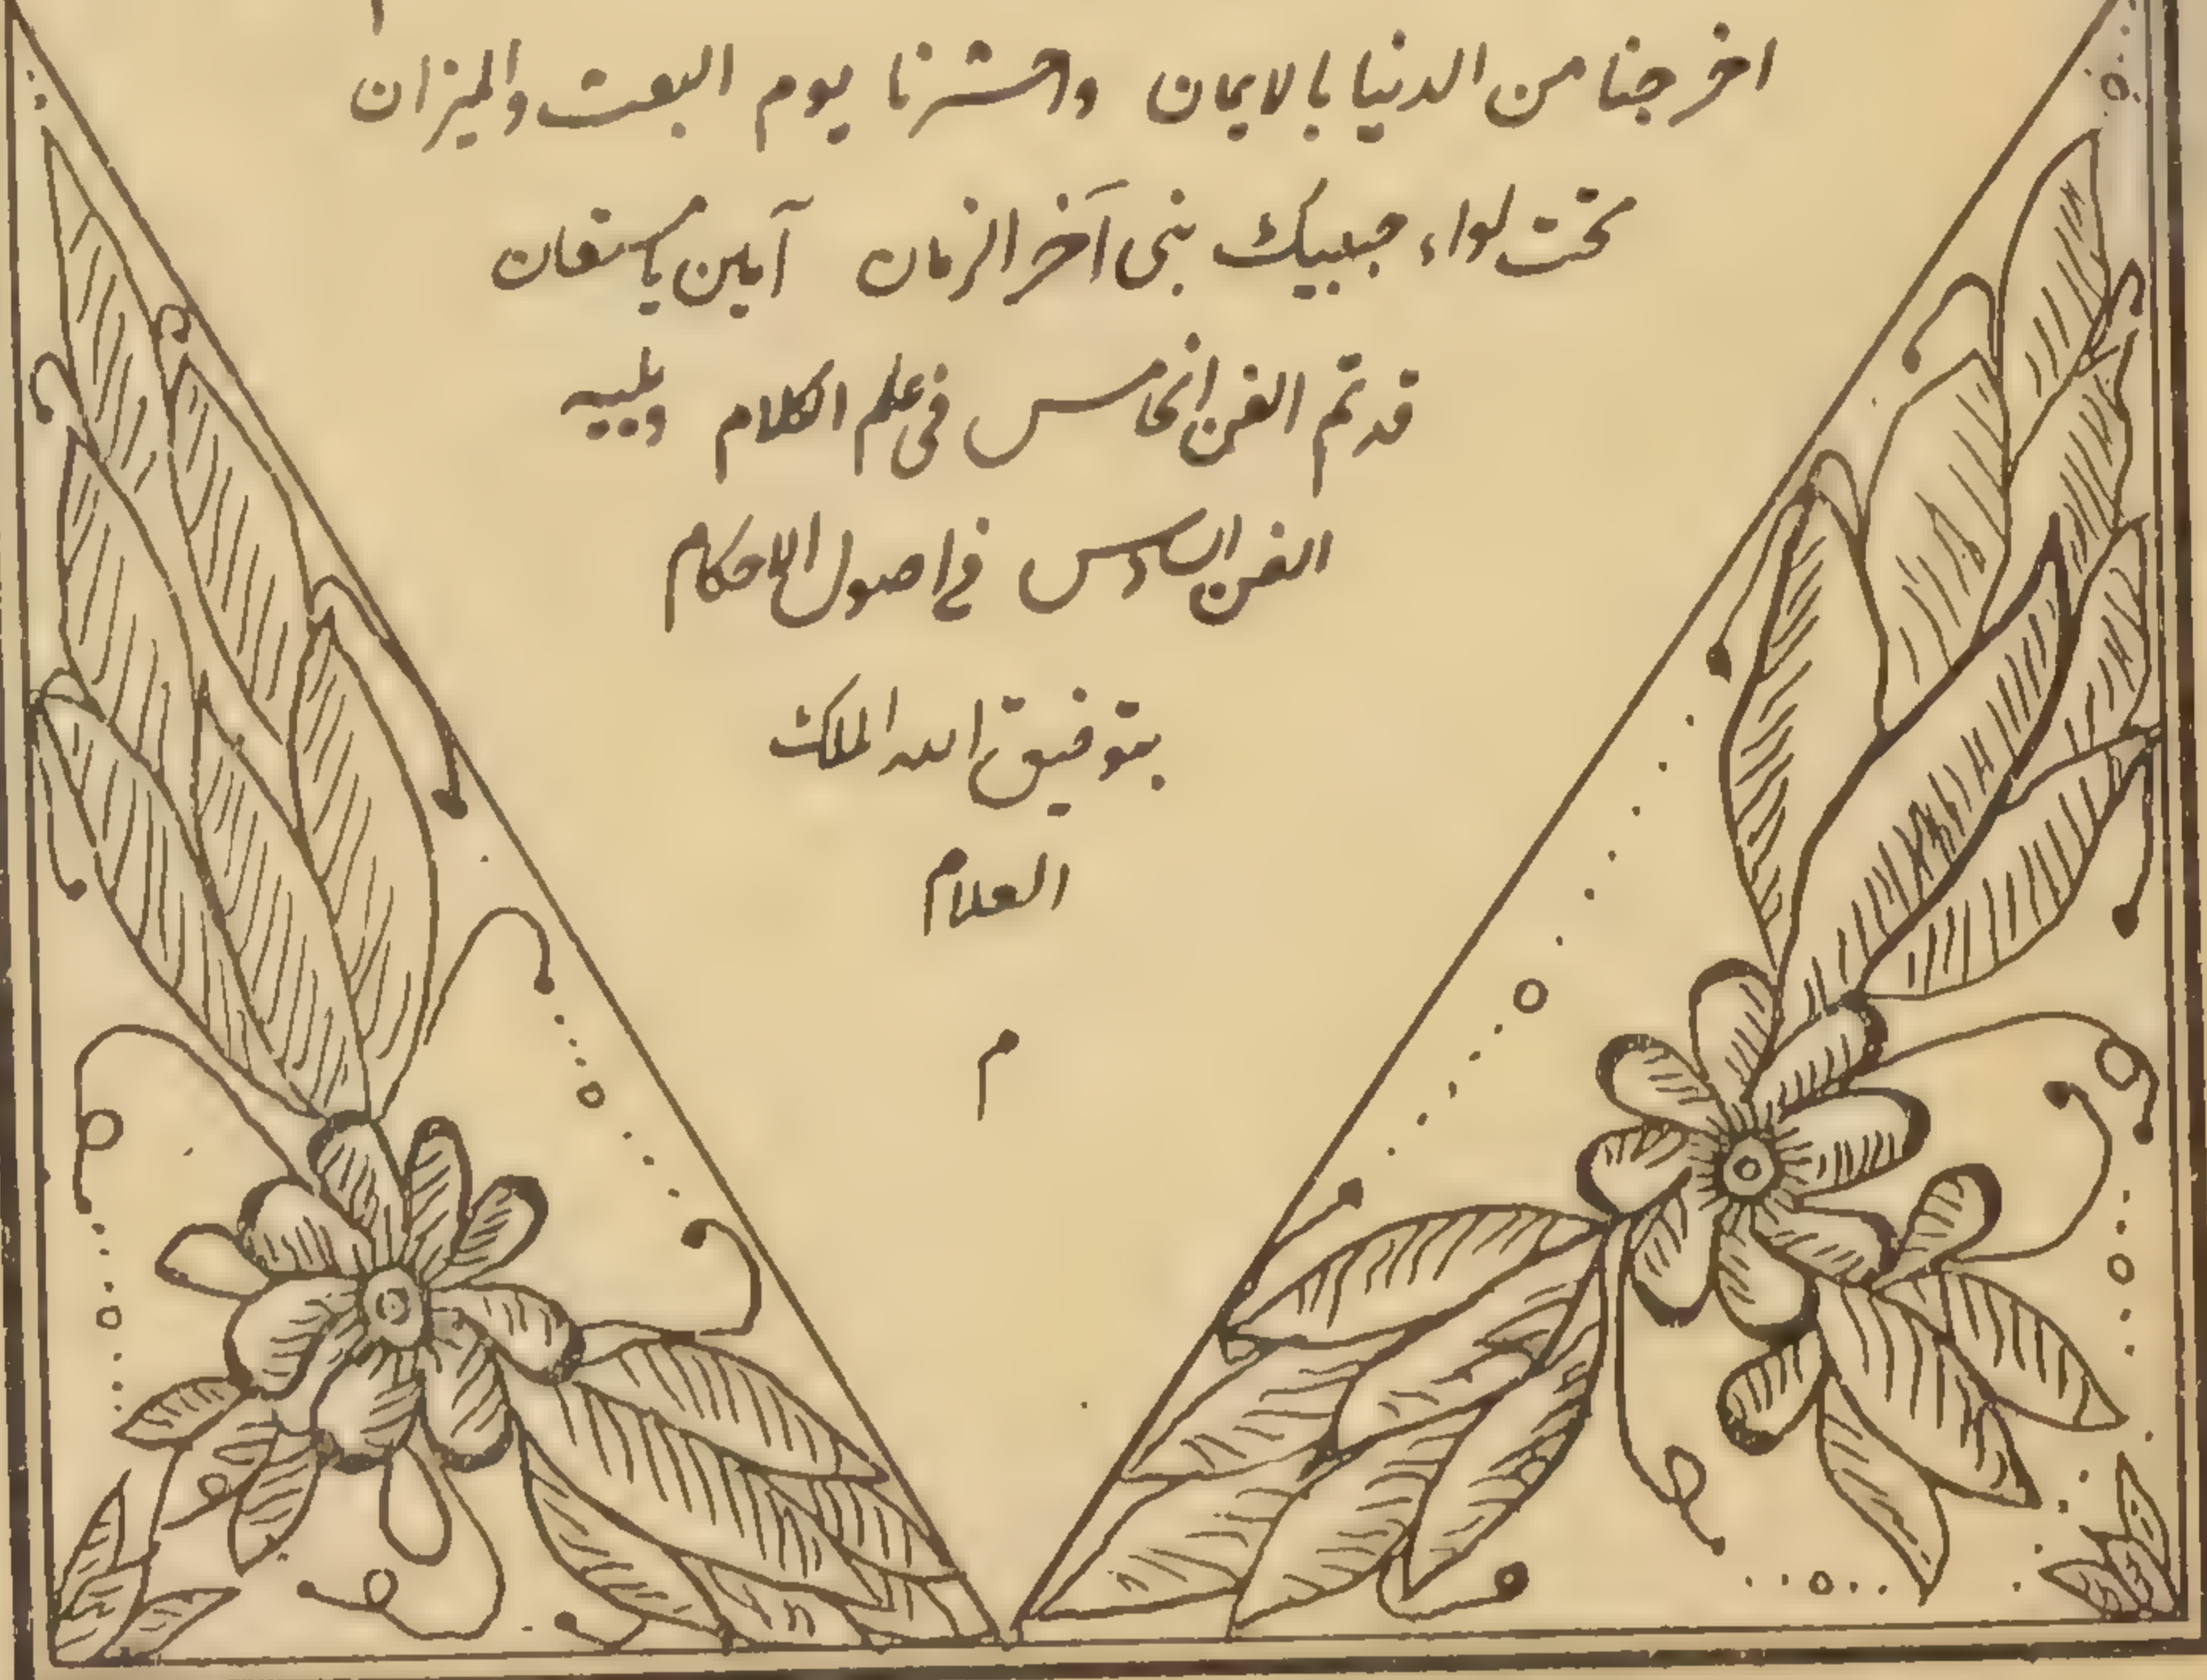 اخرجنا من الدنيا بالايمان واحشرنا يوم البعث والميزان
تحت لواء حبيبك نبى آخر الزمان آمين يا مستعان
قد تم الفن الخامس فى علم الكلام ويليه
الفن السادس فے اصول الاحكام
بتوفيق الله الملك
العلام
م